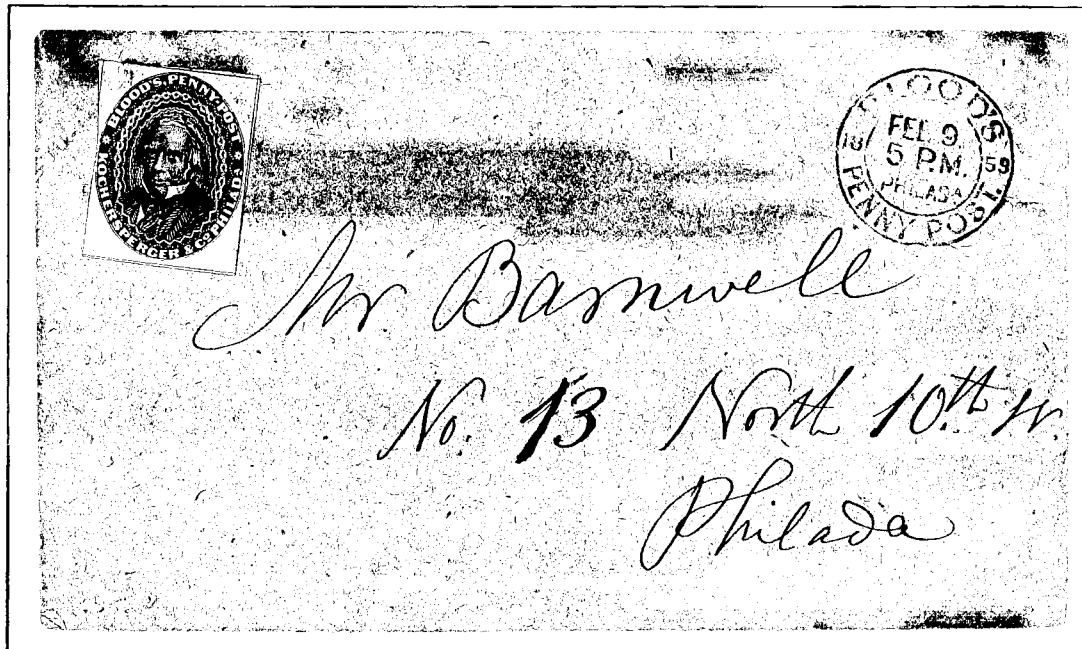 BLOOD'S PENNY POST
KOCHERSPERGER & CO. PHILADA
BLOOD'S
FEB. 9
18 59
5 P.M.
PHILADA
PENNY POST.
Mr Barnwell
No. 13 North 10th st.
Philada